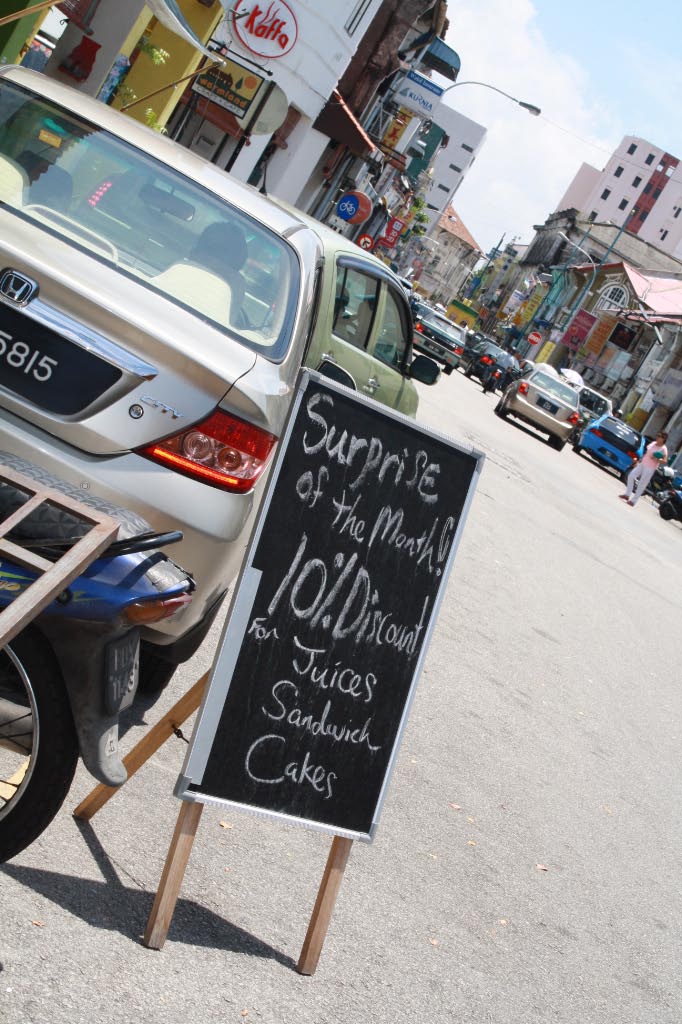 Kaffa
KURNIA
5815
CITY
Surprise
of the Month!
10% Discount
For
Juices
Sandwich
Cakes